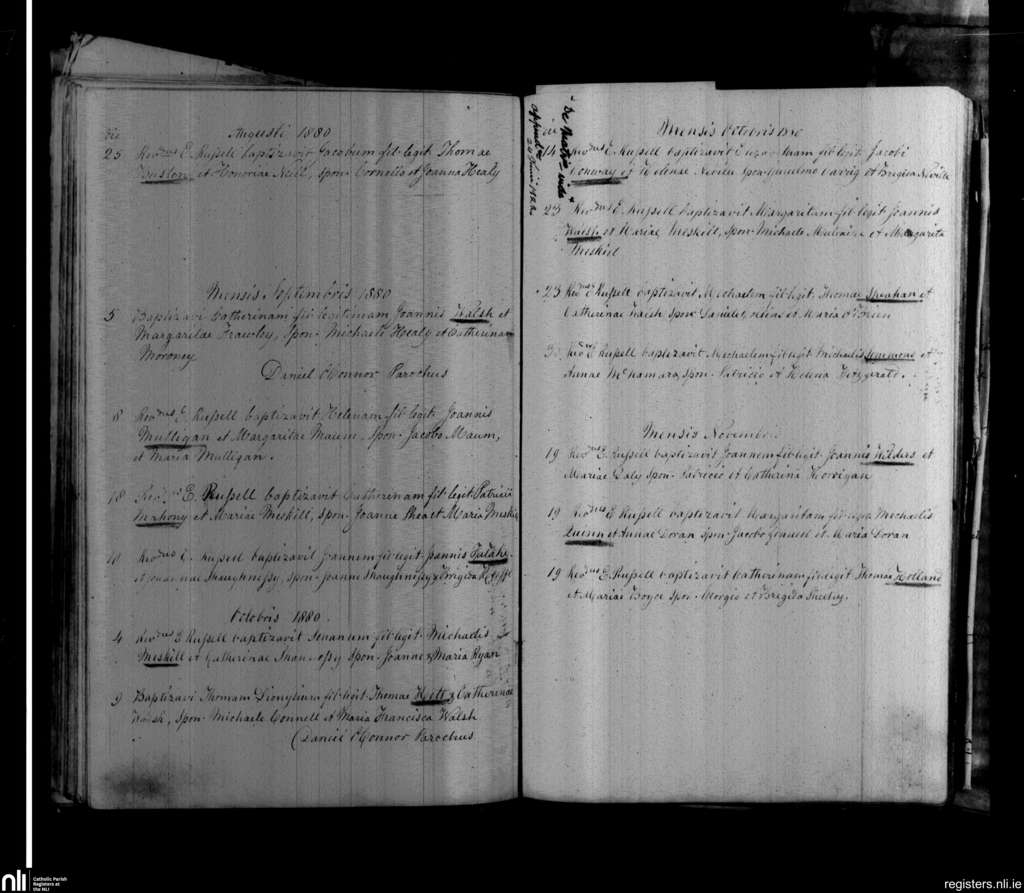 die
Augusti 1880
25 Rev.dus E. Russell baptizavit Jacobum fil. legit. Thomae
et Honoriae Neill, spon. Cornelio et Joanna Healy
Mensis Septembris 1880
5 Baptizavi Catherinam fil. legitimam Joannis Walsh et
Margaritae Frawley, Spon. Michaele Healy et Catherina
Moroney
Daniel O'Connor Parochus
8 Rev.dus E. Russell baptizavit Helenam fil. legit. Joannis
Mulligan et Margaritae Maum, Spon. Jacobo Maum,
et Maria Mulligan.
18 Rev.dus E. Russell baptizavit Catherinam fil. legit. Patricii
Mahony et Mariae Meskill, spon. Joanne Shea et Maria Meskill
Rev.dus E. Russell baptizavit Joannem fil. legit. Joannis
et Shaughnissy, spon. Joanne Shaughnissy &
Octobris 1880.
4 Rev.dus E. Russell baptizavit fil. legit. Michaelis
Meskill et Catherinae spon. Joanne & Maria Ryan
9 Baptizavi Thomam Dionysium fil. legit. Thomae & Catherinae
Walsh, Spon. Michaele Connell et Maria Francisca Walsh
(Daniel O'Connor Parochus
die
Mensis Octobris 1880
14 Rev.dus E. Russell baptizavit fil. legit. Jacobi
Conway et Helenae Neville spon. et Brigida Neville
23 Rev.dus E. Russell baptizavit Margaritam fil. legit. Joannis
Walsh et Mariae Meskill, spon. Michaele et Margarita
Meskill
23 Rev.dus E. Russell baptizavit Michaelem fil. legit. Thomae Sheahan et
Catherinae Walsh spon. et Maria O'Brien
Rev.dus E. Russell baptizavit Michaelem fil. legit. Michaelis et
Annae McNamara, spon. Patricio et Helena Fitzgerald.
Mensis Novembris
19 Rev.dus E. Russell baptizavit Joannem fil. legit. Joannis et
Mariae Daly spon. Patricio et Catherina
19 Rev.dus E. Russell baptizavit Margaritam fil. legit. Michaelis
Quinn et Annae Doran spon. Jacobo et Maria Doran
19 Rev.dus E. Russell baptizavit Catherinam fil. legit. Thomae Holland
et Mariae Boyce spon. et Brigida Sheehy.
nli
Catholic Parish
Registers at
the NLI
registers.nli.ie